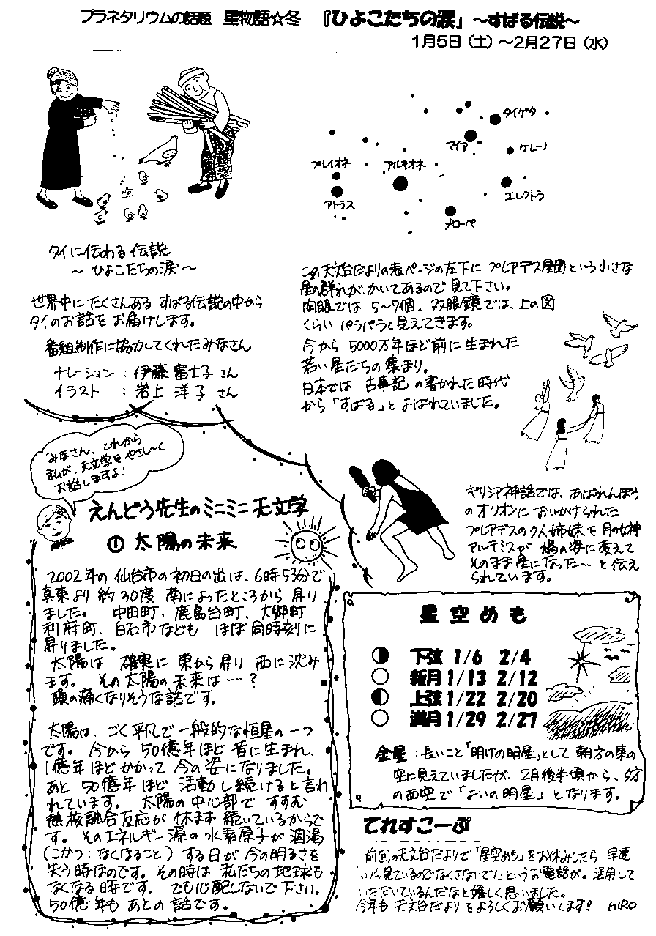 プラネタリウムの話題 星物語☆冬 『ひよこたちの涙』～すばる伝説～
1月5日(土)～2月27日(水)
タイゲタ
マイア
ケレーノ
プレイオネ
アルキオネ
アトラス
エレクトラ
メローペ
タイに伝わる伝説
～ひよこたちの涙～
世界中にたくさんある すばる伝説の中から
タイのお話をお届けします。
番組制作に協力してくれたみなさん
ナレーション：伊藤富士子さん
イラスト：岩上洋子さん
この天文台だよりの表ページの左下に プレアデス星団という小さな
星の群れが、かいてあるので 見て下さい。
肉眼では 5～7個、双眼鏡では、上の図
くらい パラパラと見えてきます。
今から 5000万年ほど前に生まれた
若い星たちの集まり。
日本では 古事記の書かれた時代
から「すばる」と よばれていました。
みなさん、これから
私が、天文学をやさし～く
お話しますよ！
えんどう先生のミニミニ天文学
① 太陽の未来
2002年の仙台市の初日の出は、6時53分で
真東より 約30度 南によったところから 昇り
ました。 中田町、鹿島台町、大郷町
利府町、白石市なども ほぼ同時刻に
昇りました。
太陽は 確実に 東から昇り 西に沈み
ます。 その太陽の未来は…？
頭の痛くなりそうな話です。
太陽は、ごく平凡で一般的な恒星の一つ
です。 今から 50億年ほど昔に生まれ、
1億年ほどかかって 今の姿になりました。
あと 50億年ほど 活動し続けると言わ
れています。 太陽の中心部で すすむ
核融合反応が 休まず 続いているからで
す。 そのエネルギー源の水素原子が涸渇
(こかつ：なくなること) する日が今の明るさを
失う時なのです。 その時は 私たちの地球も
なくなる時です。 でも心配しないで下さい。
50億年もあとの話です。
ギリシア神話では、あばれんぼう
のオリオンに おいかけられた
プレアデスの7人姉妹を 月の女神
アルテミスが 鳩の姿に変えて
そのまま星になった～ と伝え
られています。
星空めも
下弦 1/6 2/4
新月 1/13 2/12
上弦 1/22 2/20
満月 1/29 2/27
金星：長いこと「明けの明星」として 朝方の東の
空に見えていましたが、2月後半頃から、夕方
の西空で「よいの明星」となります。
てれすこーぷ
前回の天文台だよりで「星空めも」をお休みしたら 早速
いただいているんだなと嬉しく思いました。
今年も 天文台だよりをよろしくお願いします！ HIRO